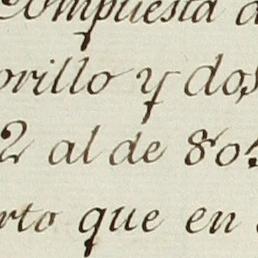 Compuesta d
orillo y dos
2 al de 80
rto que en